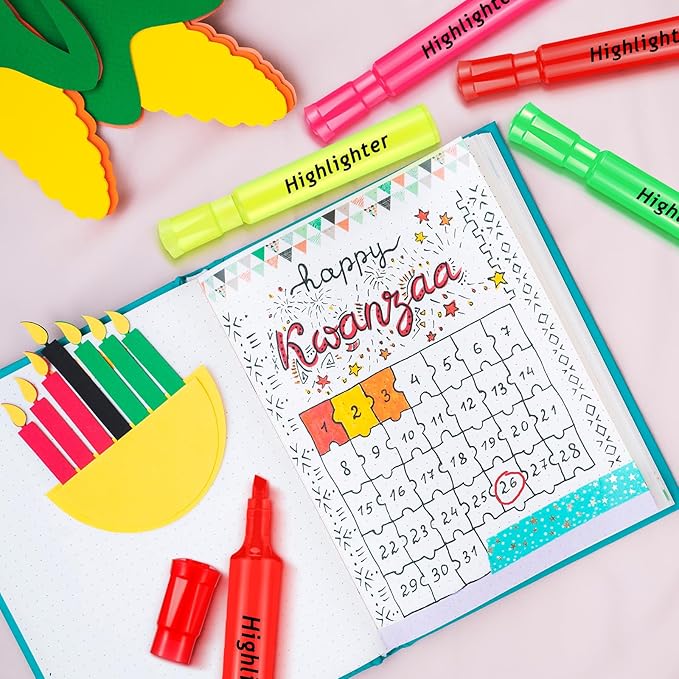 Highlighter
Highlight
Highlighter
Highli
happy
Kwanzaa
1 2 3 4 5 6 7
8 9 10 11 12 13 14
15 16 17 18 19 20 21
22 23 24 25 26 27 28
29 30 31
Highli